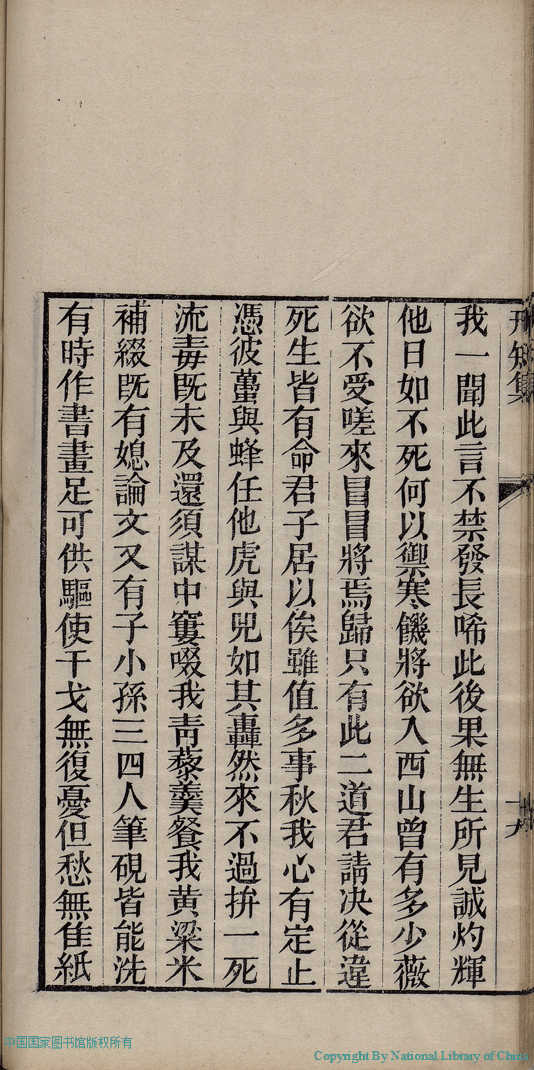 我一聞此言不禁發長唏此後果無生所見誠灼輝
他日如不死何以禦寒饑將欲入西山曾有多少薇
欲不受嗟來冒冒將焉歸只有此二道君請决從違
死生皆有命君子居以俟雖值多事秋我心有定止
憑彼蠆與蜂任他虎與兕如其轟然來不過拚一死
流毒既未及還須謀中窶啜我青藜羹餐我黄粱米
補綴既有媳論文又有子小孫三四人筆硯皆能洗
有時作書畫足可供驅使干戈無復憂但愁無隹紙
中国国家图书馆版权所有
Copyright By National Library of China